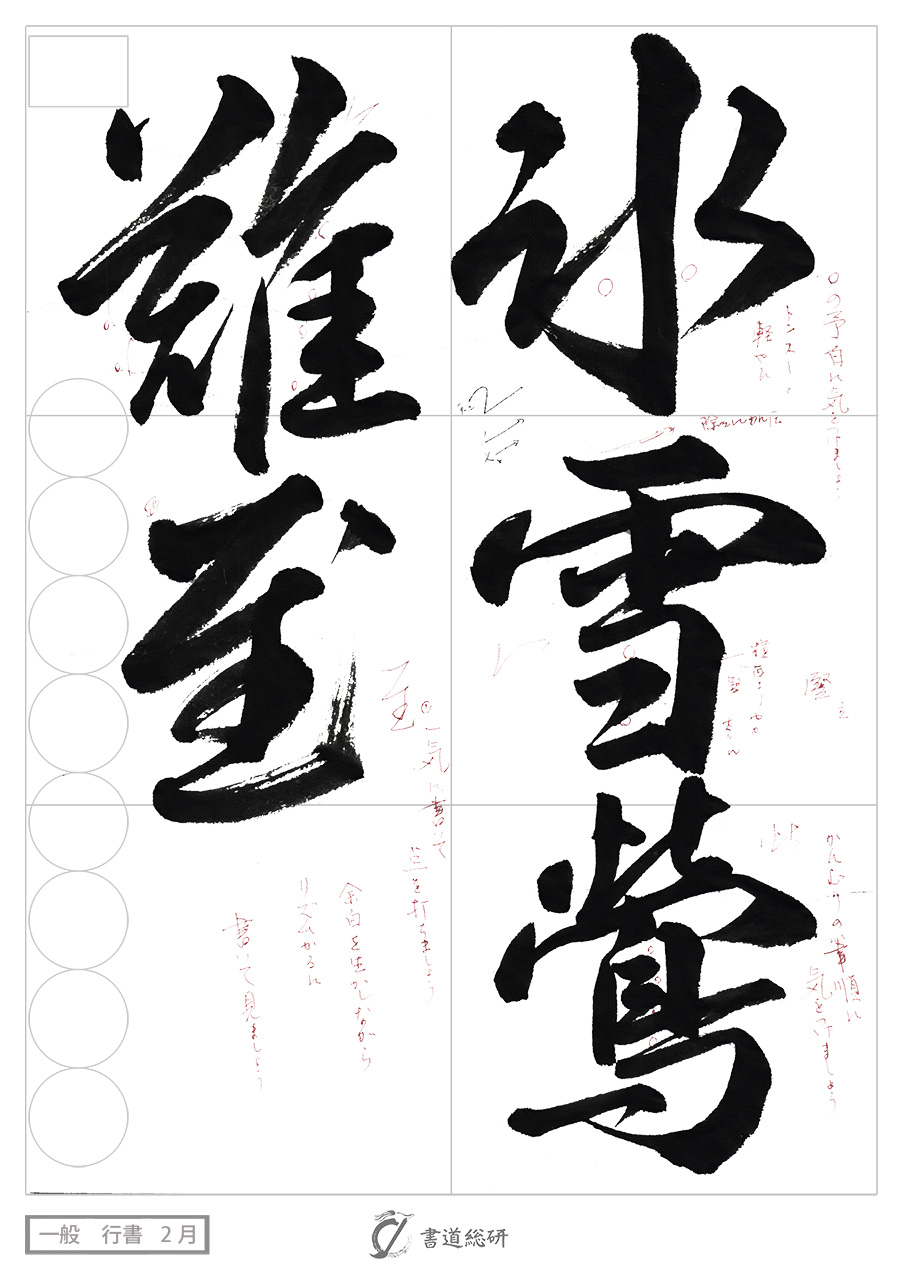 氷雪鶯
難至
○の予白に気をつけましょう
トンスーッ
軽やかに
かんむりの筆順に
気を付けましょう
一気に書いて
点を打ちましょう
余白を生かしながら
リズムかるに
書いて見ましょう
一般 行書 2月
書道総研